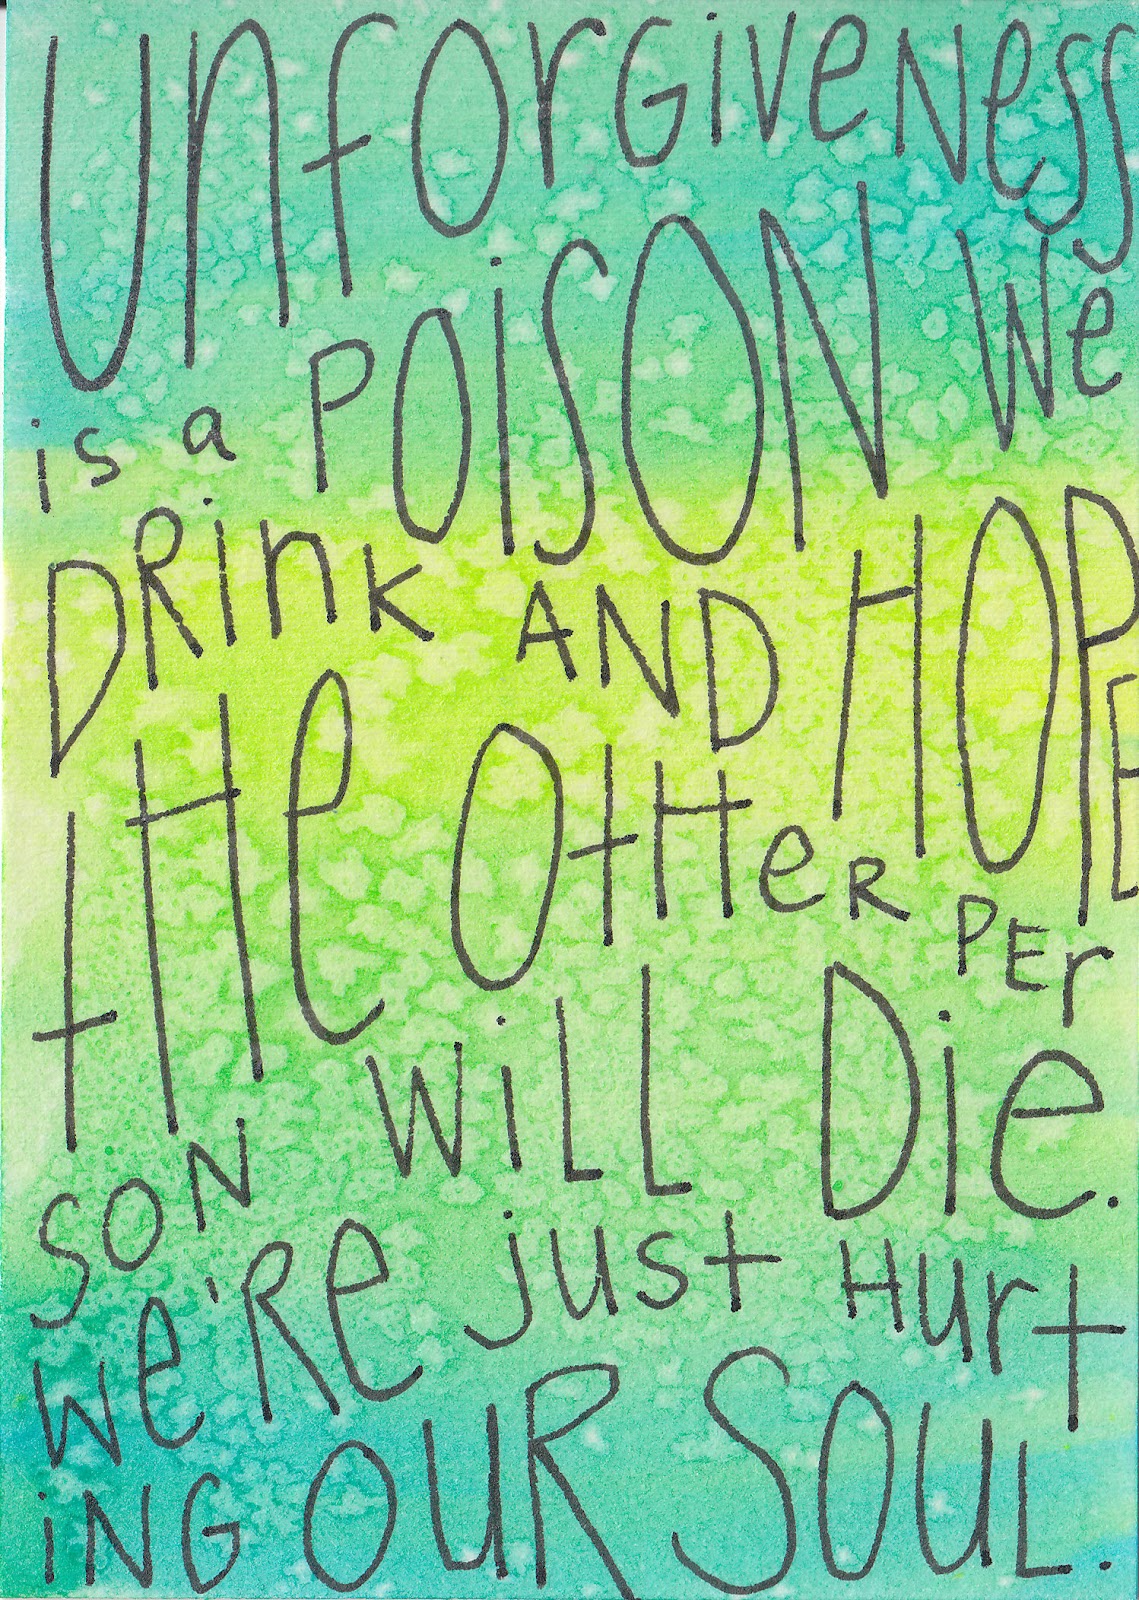 UnforGiveNess
is a POISON We
DRink AND HOPE
tHe OtHeR PEr
SON WiLL Die.
We'Re just Hurt
iNG OUR SOUL.